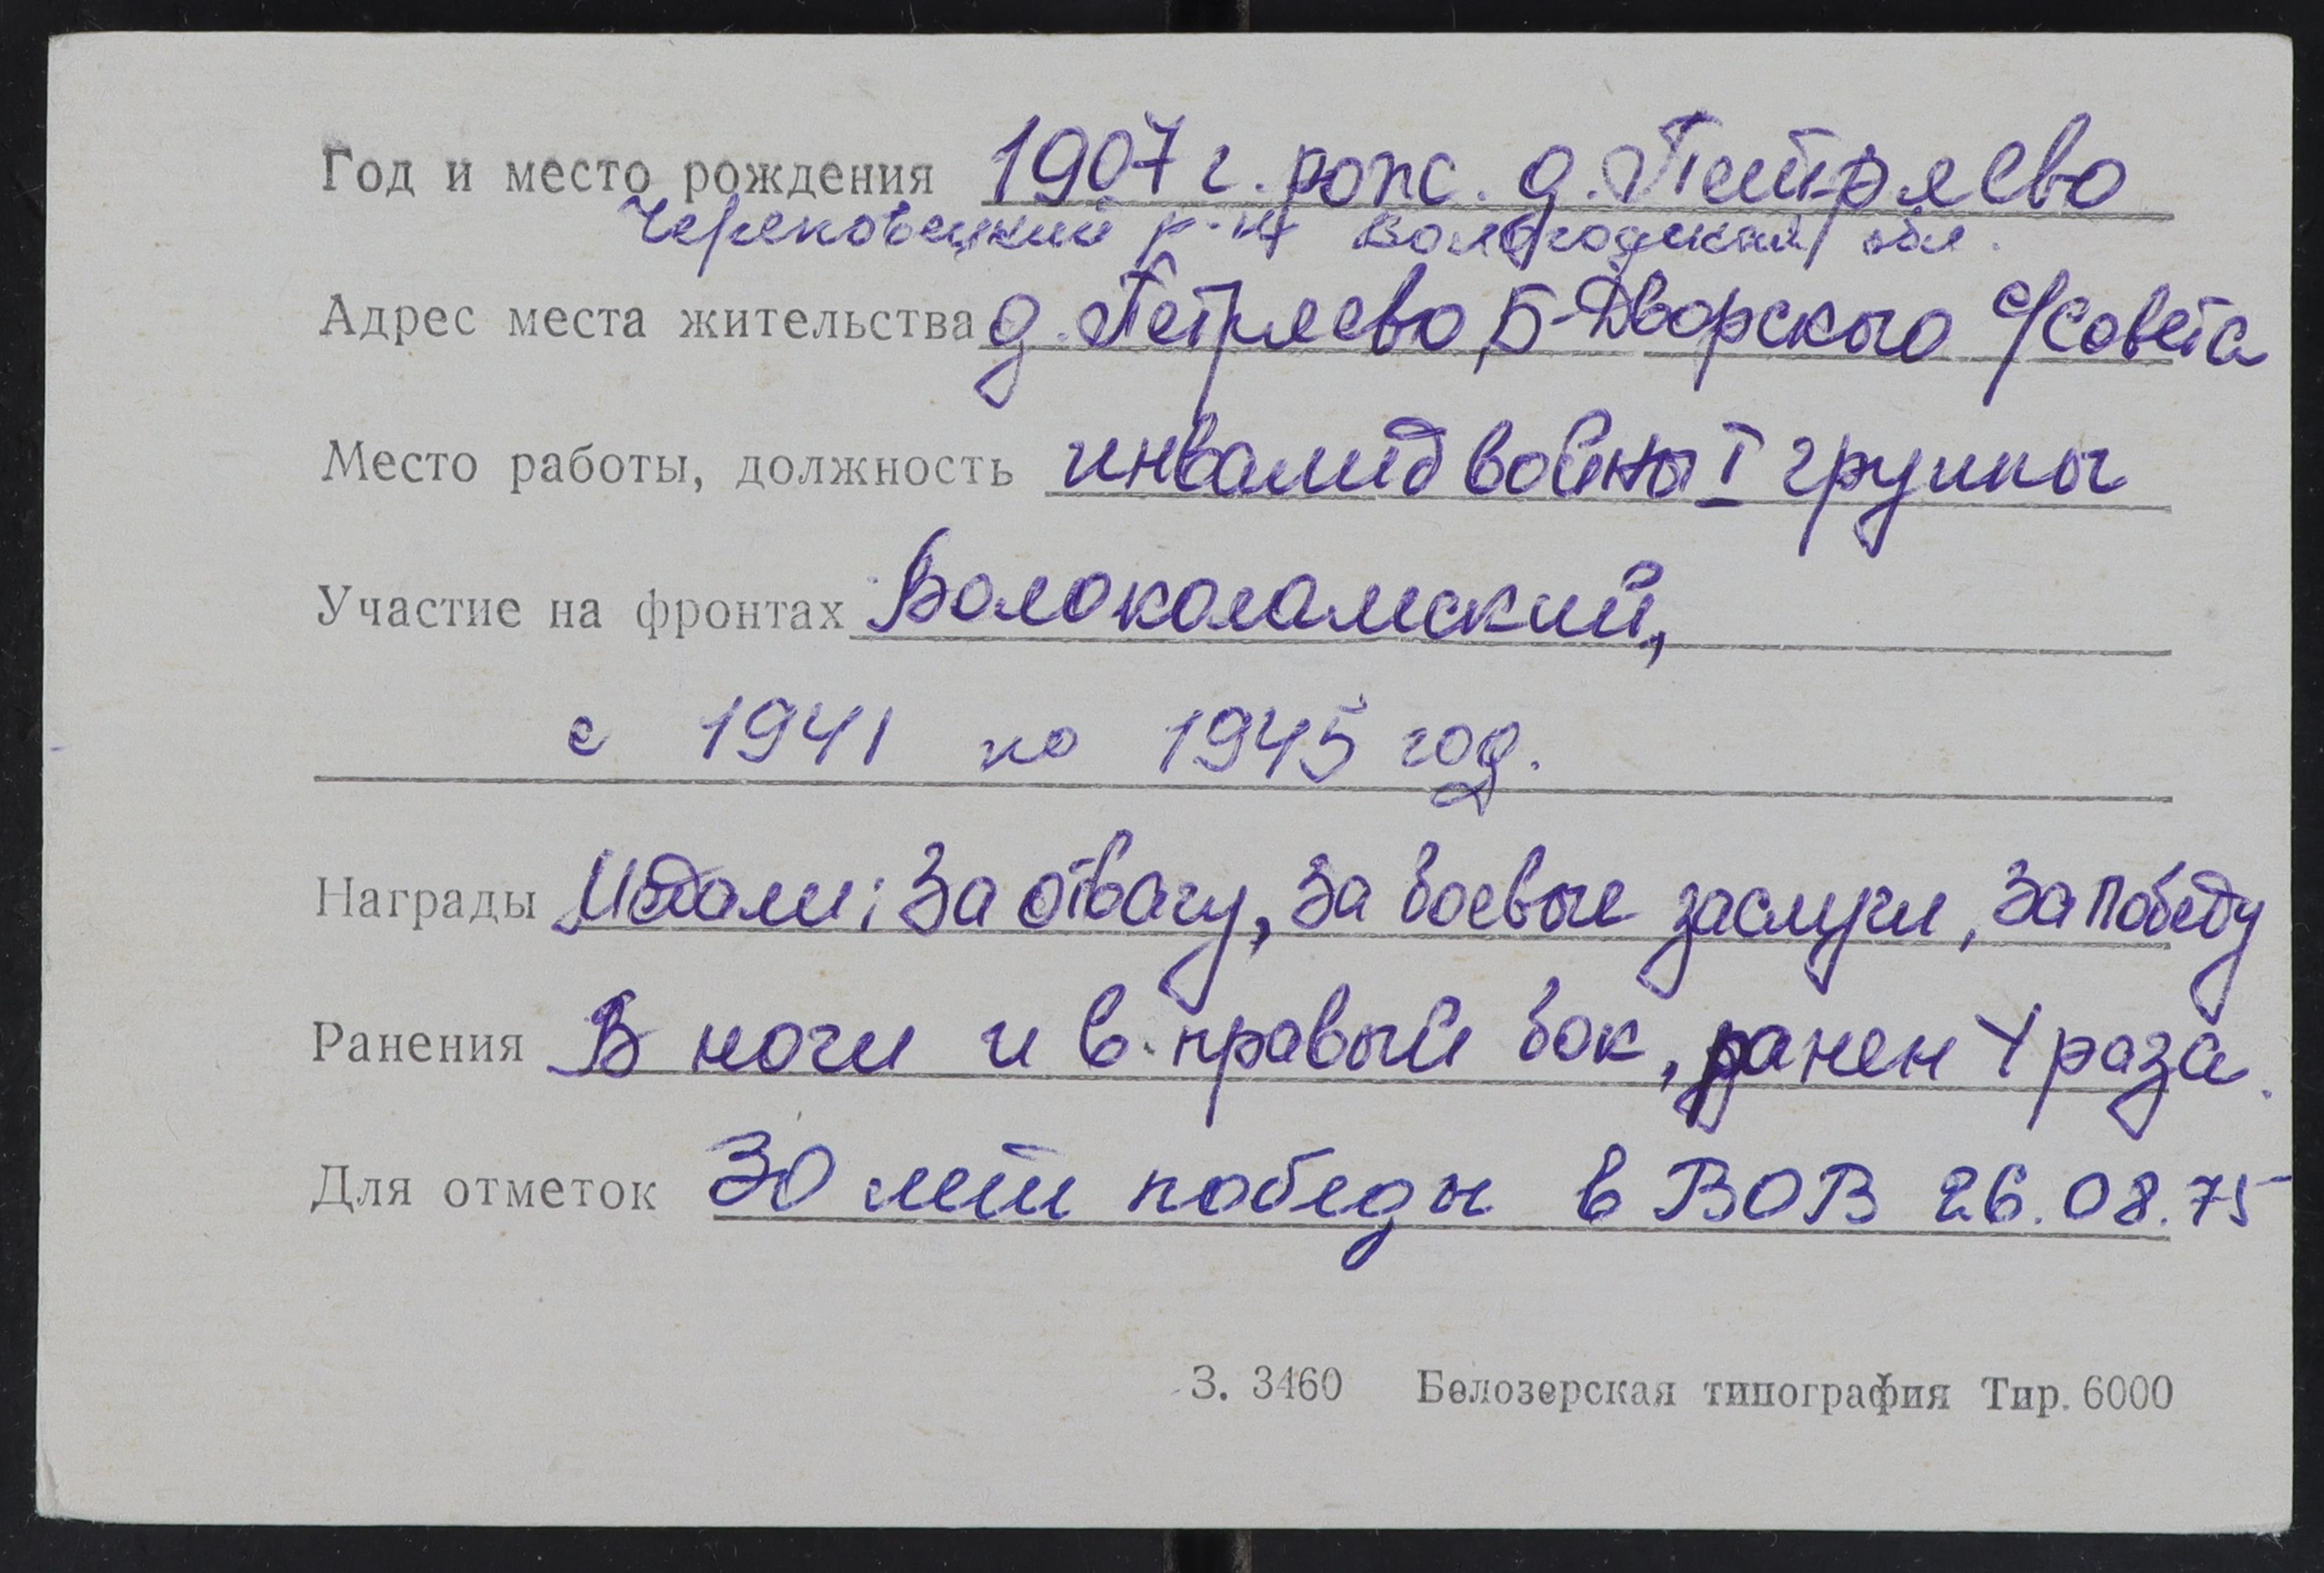 Год и место рождения 1907 г. рожс. д. Петряево
Череповецкий р-н Вологодский обл.
Адрес места жительства д. Петряево, Б-Дворского с/совета
Место работы, должность инвалид войны I группы
Участие на фронтах Волоколамский,
с 1941 по 1945 год.
Награды Медали: За отвагу, За боевые заслуги, За победу
Ранения В ноги и в правый бок, ранен 4 раза.
Для отметок 30 лет победы в ВОВ 26.08.75
З. 3460 Белозерская типография Тир. 6000